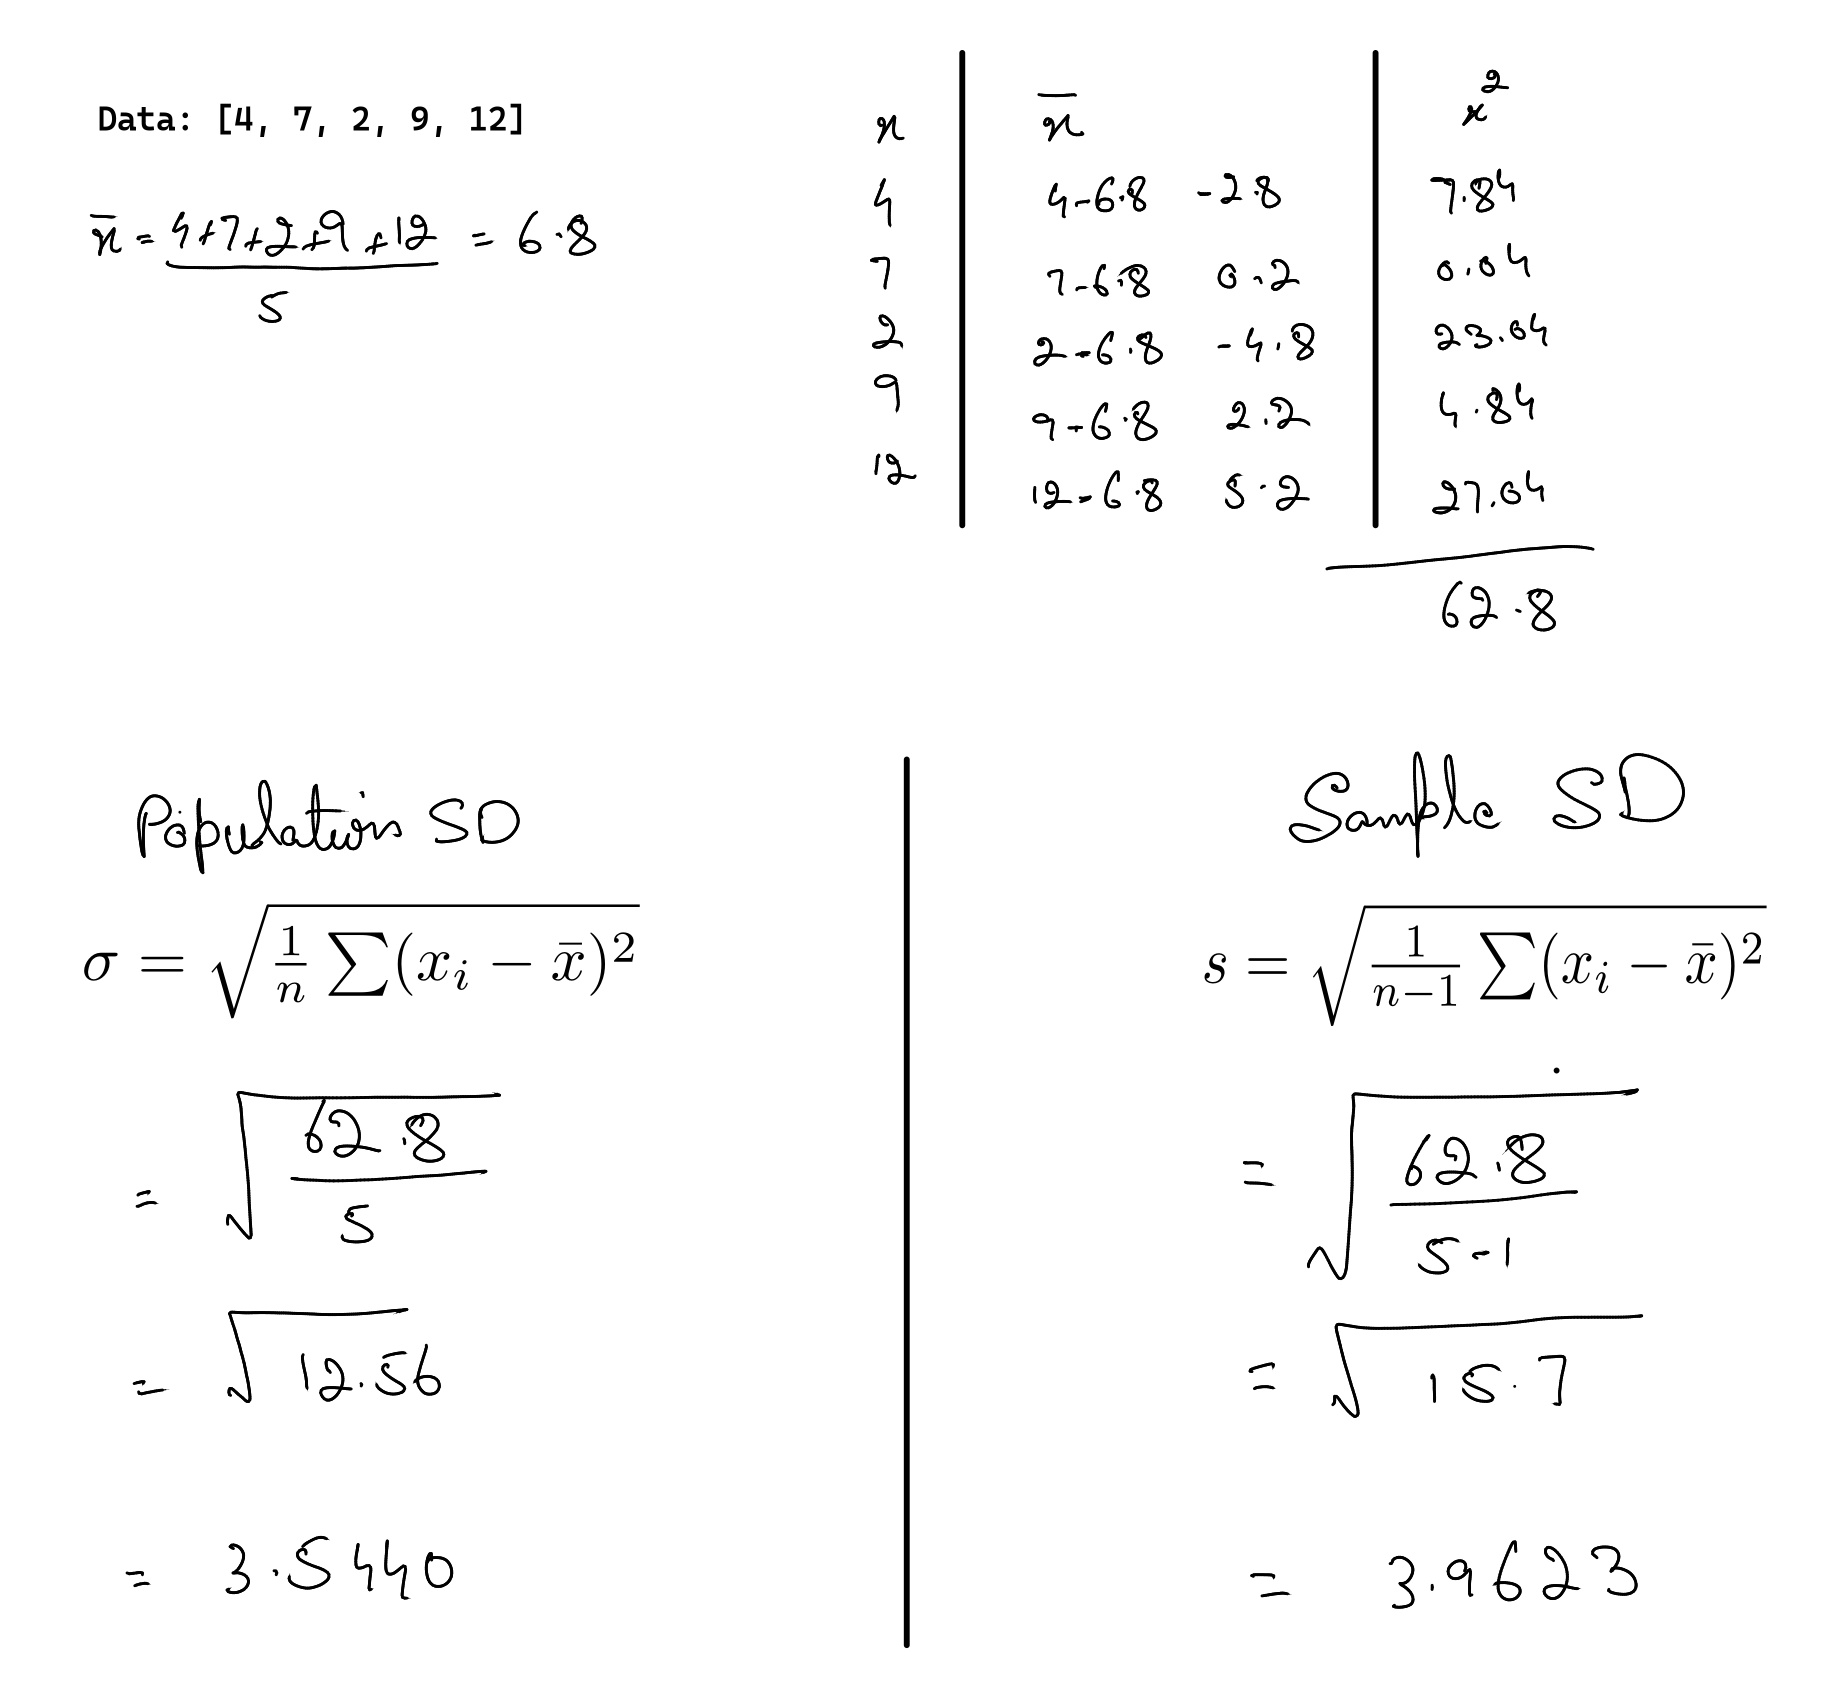 Data: [4, 7, 2, 9, 12]
x̄ = 4+7+2+9+12 = 6.8
5
x x̄ x²
4 4-6.8 -2.8 7.84
7 7-6.8 0.2 0.04
2 2-6.8 -4.8 23.04
9 9-6.8 2.2 4.84
12 12-6.8 5.2 27.04
62.8
Population SD
σ = √(1/n ∑(xᵢ − x̄)²)
= √(62.8/5)
= √12.56
= 3.5440
Sample SD
s = √(1/(n−1) ∑(xᵢ − x̄)²)
= √(62.8/(5-1))
= √15.7
= 3.9623